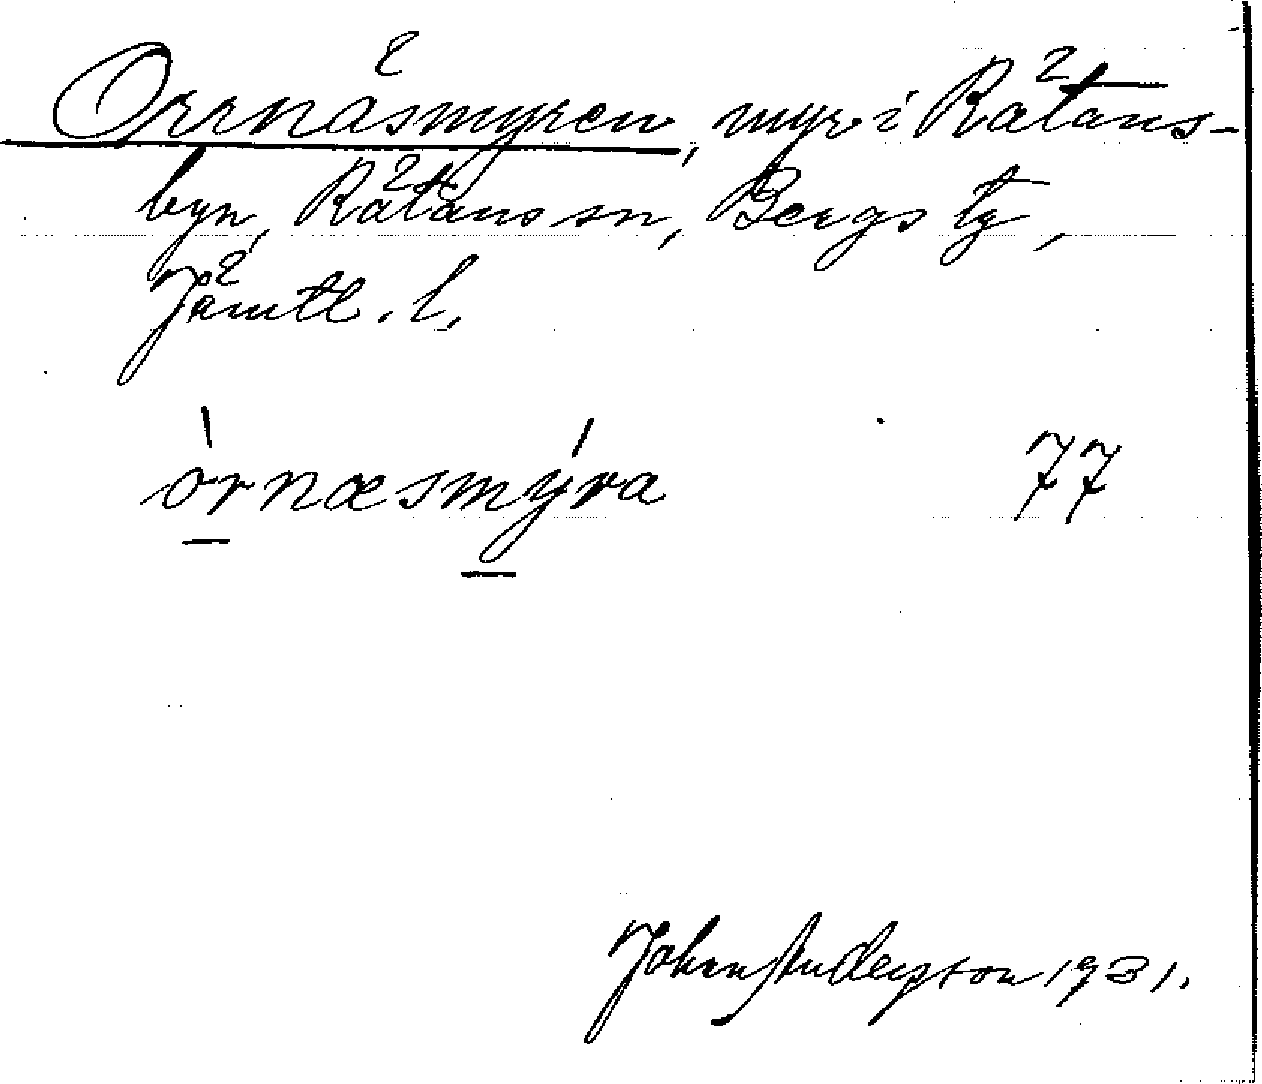 Orrnäsmyren, myr i Rätans-
byn, Rätans sn, Bergs tg,
Jämtl. l.
órnæsmýra 77
Johan Anderson 1931.